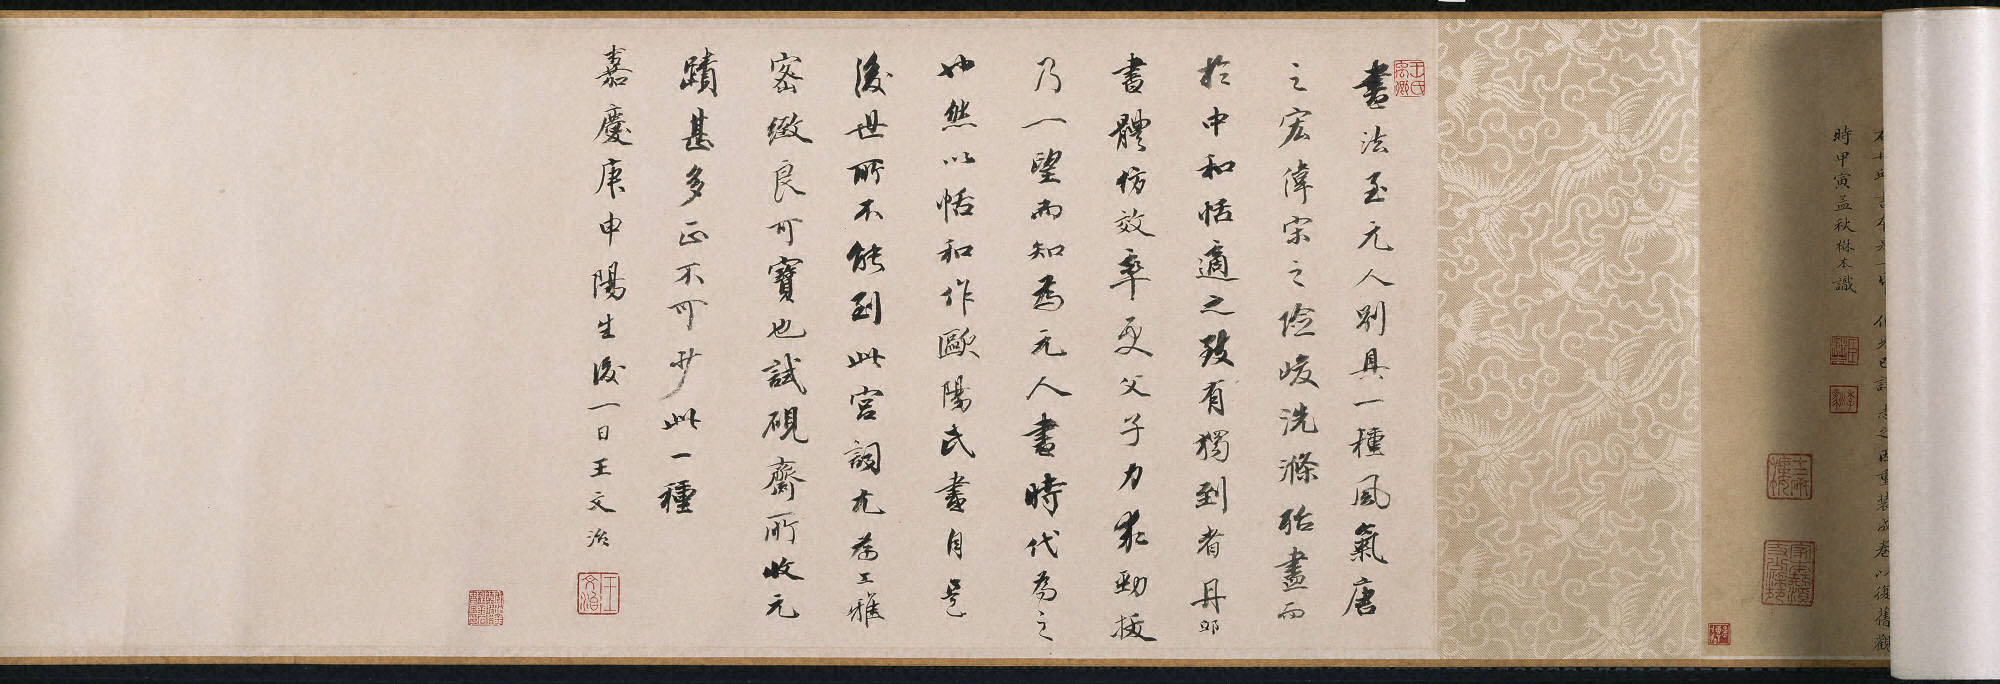 時甲寅孟秋楙本識
書法至元人別具一種風氣唐
之宏偉宋之險峻洗滌殆盡而
於中和恬適之致有獨到者丹邱
書體仿效率更父子力求勁拔
乃一望而知為元人書時代為之
也然以恬和作歐陽氏書自是
後世所不能到此宮詞尤為工雅
密緻良可寶也試硯齋所收元
蹟甚多正不可少此一種
嘉慶庚申陽生後一日王文治
王文治